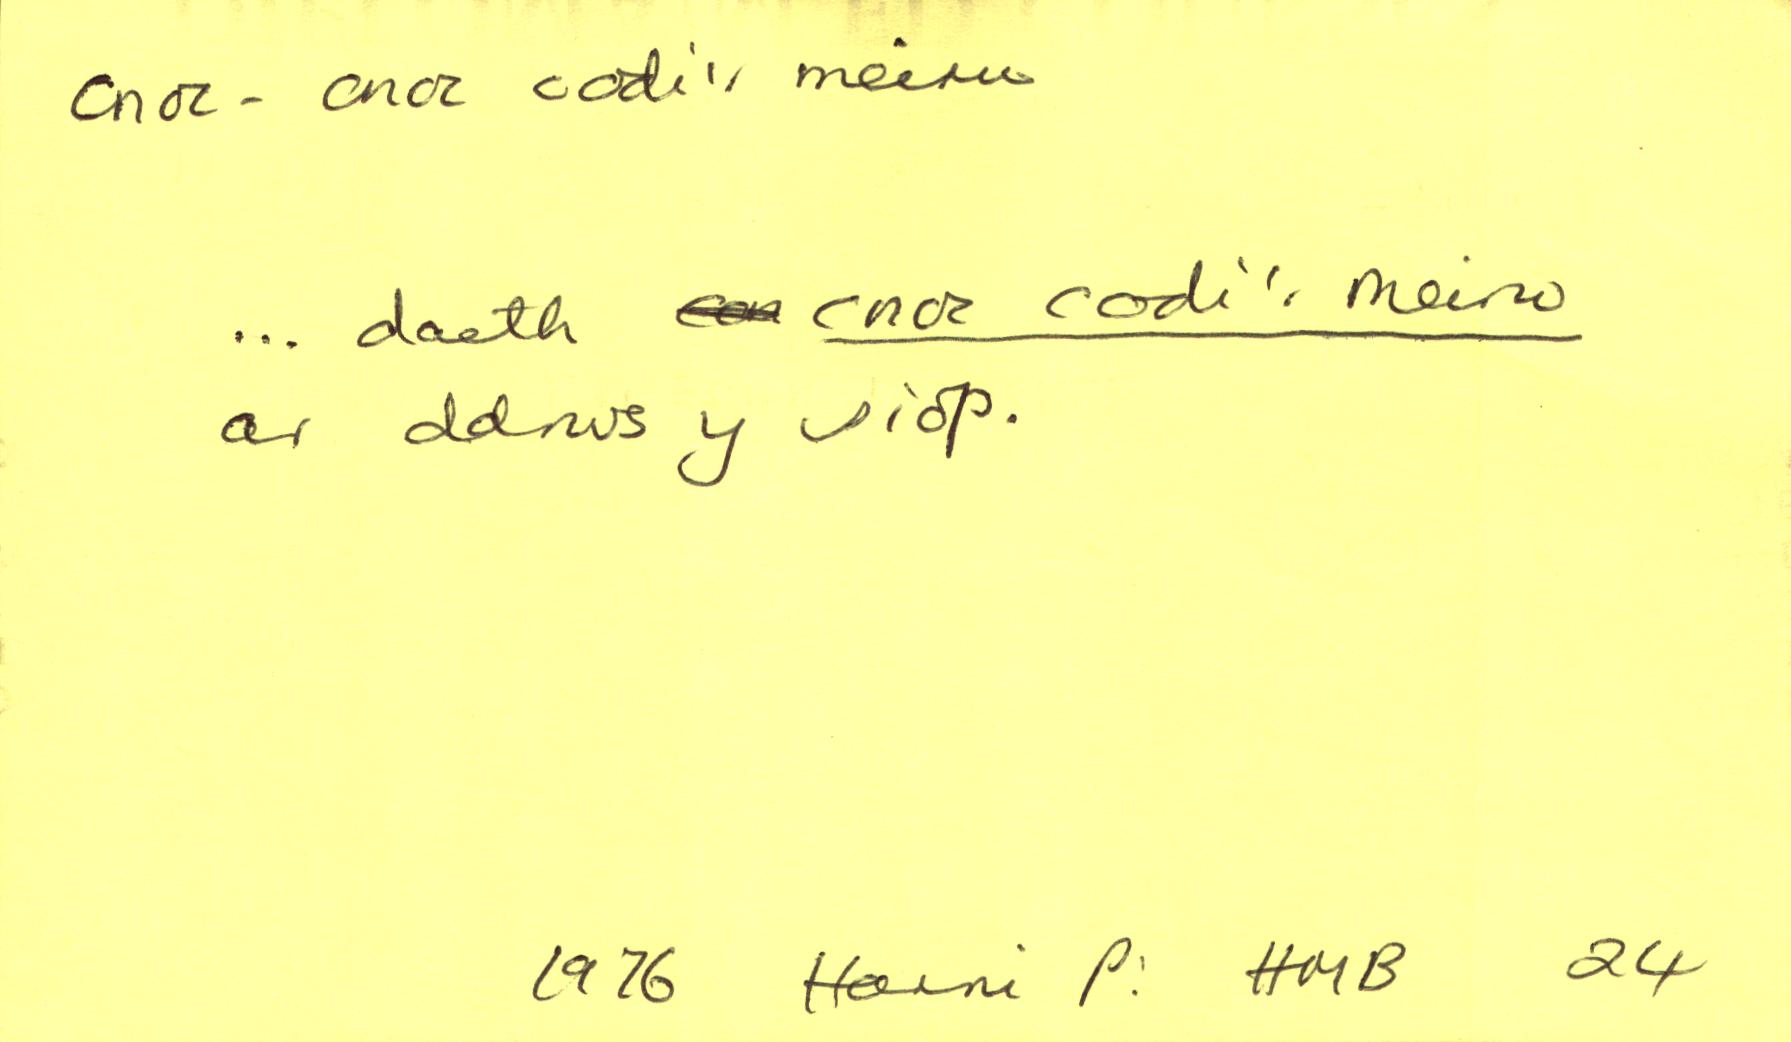 cnoc - cnoc codi'r meirw
... daeth cnoc codi'r meirw
ar ddrws y siop.
1976 Harri P: HMB 24